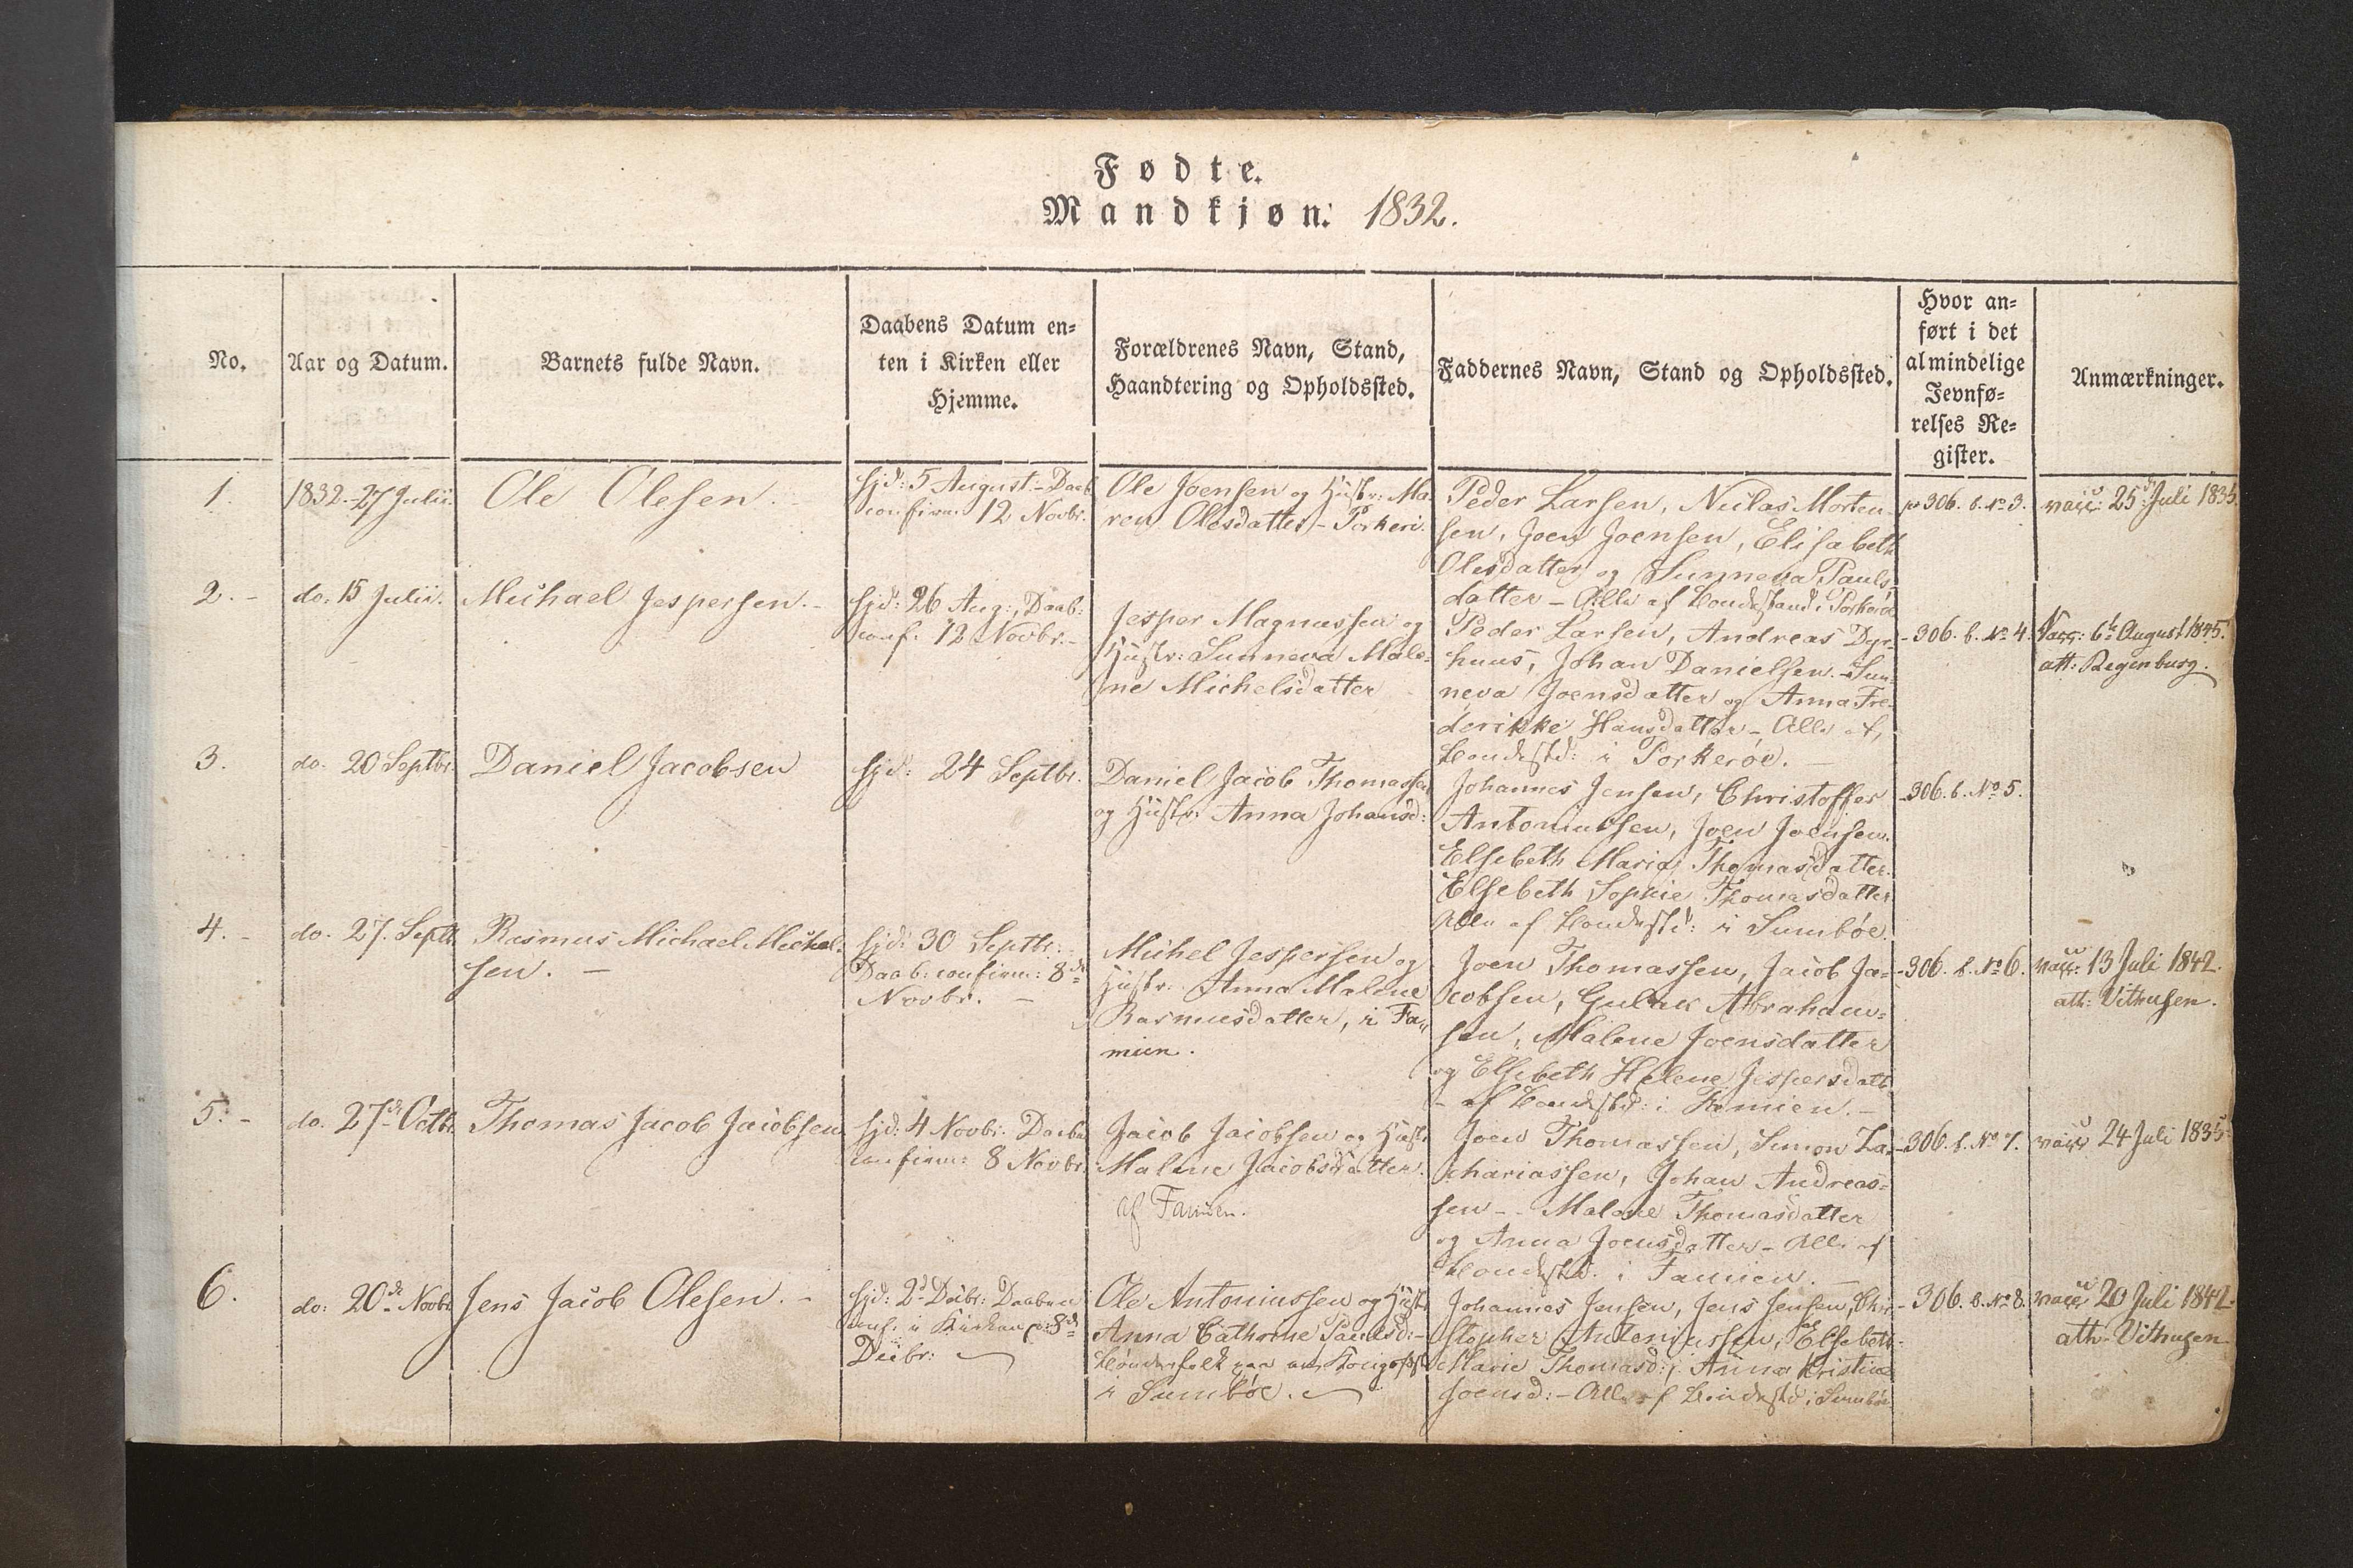 Fødte.
Mandkjøn. 1832.
No.
Aar og Datum.
Barnets fulde Navn.
Daabens Datum en=
ten i Kirken eller
Hjemme.
Forældrenes Navn, Stand,
Haandtering og Opholdssted.
Faddernes Navn, Stand og Opholdssted.
Hvor an=
ført i det
almindelige
Jevnfø=
relses Re=
gister.
Anmærkninger.
1.
1832.-27 Julii.
Ole Olesen.
hjd: 5 August-Daab
confirm 12 Novbr.
Ole Joensen og Hustr: Ma-
ren Olesdatter - Porkeri.
Peder Larsen, Niclas Morten-
sen, Joen Joensen, Elisabeth
Olesdatter og Sunneva Pauls-
datter - Alle af Bondestand i Porkerøe
306. b. No 3.
vacc: 25 Juli 1835.
2. -
do. 15 Julii.
Michael Jespersen. -
hjd: 26 Aug:, Daab:
conf. 12 Novbr. -
Jesper Magnussen og
Hustr: Sunneva Male-
ne Michelsdatter
Peder Larsen, Andreas Dyr-
huus, Johan Danielsen. - Sun-
neva Joensdatter og Anna Fre-
derikke Hansdatter - Alle af
Bondestd: i Porkerøe. -
- 306. b. No 4.
Vacc: 6te August 1845.
att: Regenburg.
3.
do. 20 Septbr.
Daniel Jacobsen
hjd: 24 Septbr.
Daniel Jacob Thomassen
og Hustr: Anna Johansd:
Johannes Jensen, Christoffer
Antoniussen, Joen Joensen.
Elsebeth Maria Thomasdatter.
Elsebeth Sophie Thomasdatter
Alle af Bondestd: i Sumbøe.
- 306. b. No 5.
4. -
do. 27. Septb.
Rasmus Michael Michel-
sen. -
hjd: 30 Septbr: -
Daab: confirm: 8de
Novbr. -
Michel Jespersen og
Hustr: Anna Malene
Rasmusdatter, i Fa-
mien.
Joen Thomassen, Jacob Ja-
cobsen, Gulak Abraham-
sen, Malene Joensdatter
og Elsebeth Helene Jespersdatt.
- af Bondestd: i Famien. -
- 306. b. No 6.
vacc: 13 Juli 1842.
ath: Vithusen.
5. -
do. 27de Octbr.
Thomas Jacob Jacobsen
hjd: 4 Novbr. Daaben
confirm: 8 Novbr.
Jacob Jacobsen og Hustr.
Malene Jacobsdatter.
af Famien.
Joen Thomassen, Simon Za-
chariassen, Johan Andreas-
sen - - Malene Thomasdatter
og Anna Joensdatter - Alle af
Bondestd. i Famien. -
- 306. b. No 7.
vacc 24 Juli 1835
6.
do: 20de Novbr.
Jens Jacob Olesen. -
hjd: 2d Decbr: Daaben
conf. i Kirken 8de
Decbr:
Ole Antoniussen og Hustr.
Anna Cathrine Paulsd: -
Bønderfolk
i Sumbøe.
Johannes Jensen, Jens Jensen, Chri-
stopher Antoniussen, Elsebeth
Marie Thomasd:, Anna Kristine
Joensd: - Alle af Bondestd: i Sumbøe
- 306. b. No 8.
vacc 20 Juli 1842.
ath. Vithusen